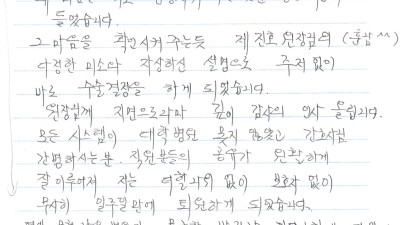 들었습니다.
그 마음을 확인시켜 주는듯 제 진호 원장님의 (훈남^^)
다정한 미소와 자상하신 설명으로 주저 없이
바로 수술결정을 하게 되었습니다.
원장님께 지면으로라마 깊이 감사의 인사 올립니다.
모든 시스템이 대학병원 못지 않았고 간호사님
간병하시는분. 직원분들의 공유가 원활하게
잘 이루어져 저는 역할과의 없이 보호자 없이
무사히 일주일만에 퇴원하게 되었습니다.